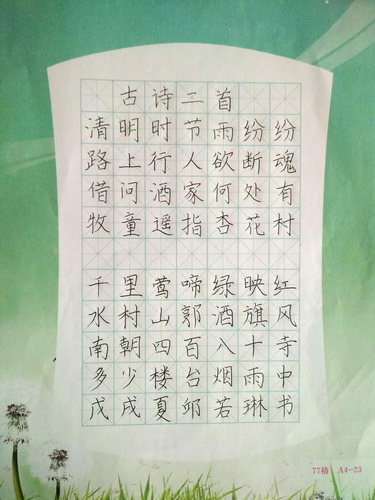 古诗二首
清明时节雨纷纷
路上行人欲断魂
借问酒家何处有
牧童遥指杏花村
千里莺啼绿映红
水村山郭酒旗风
南朝四百八十寺
多少楼台烟雨中
戊戌夏邱若琳书
77格 A4-23